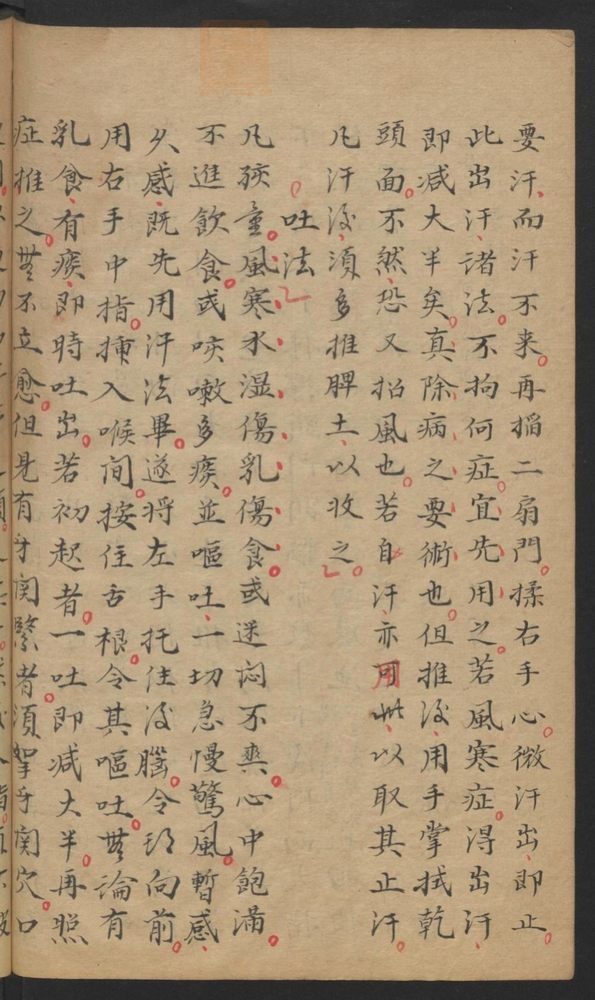 要汗而汗不来。再掐二扇門。揉右手心。微汗出、即止。
此出汗、諸法。不拘何症。宜先用之。若風寒症。得出汗、
即减大半矣。真除病、之要術也。但推後、用手掌拭乾
頭面。不然、恐又招風也。若自汗、亦用此、以取其止汗。
凡汗後、須多推脾土、以收之。
吐法
凡孩童。風寒、水湿、傷乳、傷食。或迷悶不爽。心中飽滿。
不進飲食。或咳嗽多痰。並嘔吐、一切急慢驚風。暫感、
久感、既先用汗法畢。遂将左手托住後腦。令頭向前。
用右手中指。插入喉间。按住舌根。令其嘔吐。無論有
乳食、有痰、即時吐出。若初起者。一吐即减大半。再照
症推之。無不立愈。但見有牙関緊者。須掐牙関穴。口